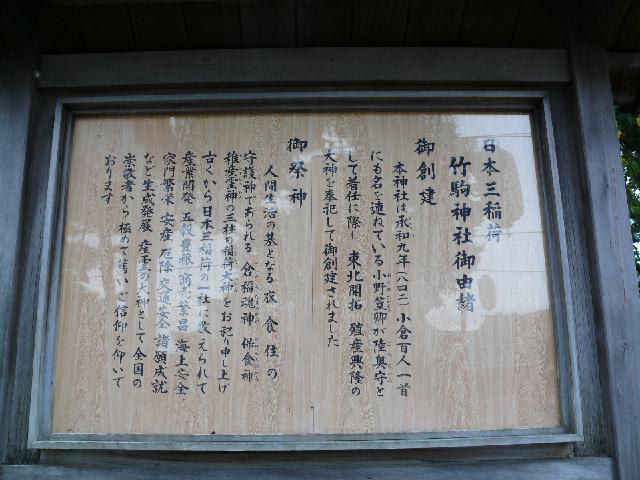 日本三稲荷
竹駒神社御由緒
御創建
本神社は承和九年(八四二)小倉百人一首
にも名を連ねている小野篁卿が陸奥守と
して着任に際し 東北開拓 殖産興隆の
大神を奉祀して御創建されました
御祭神
人間生活の基となる衣 食 住 の
守護神であられる 倉稲魂神 保食神
稚産霊神の三柱の稲荷大神をお祀り申し上げ
古くから日本三稲荷の一社に数えられて
産業開発 五穀豊穣 商売繁昌 海上安全
家門繁栄 安産 厄除 交通安全 諸願成就
など生成発展 産霊の大神として全国の
崇敬者から極めて篤いご信仰を仰いで
おります